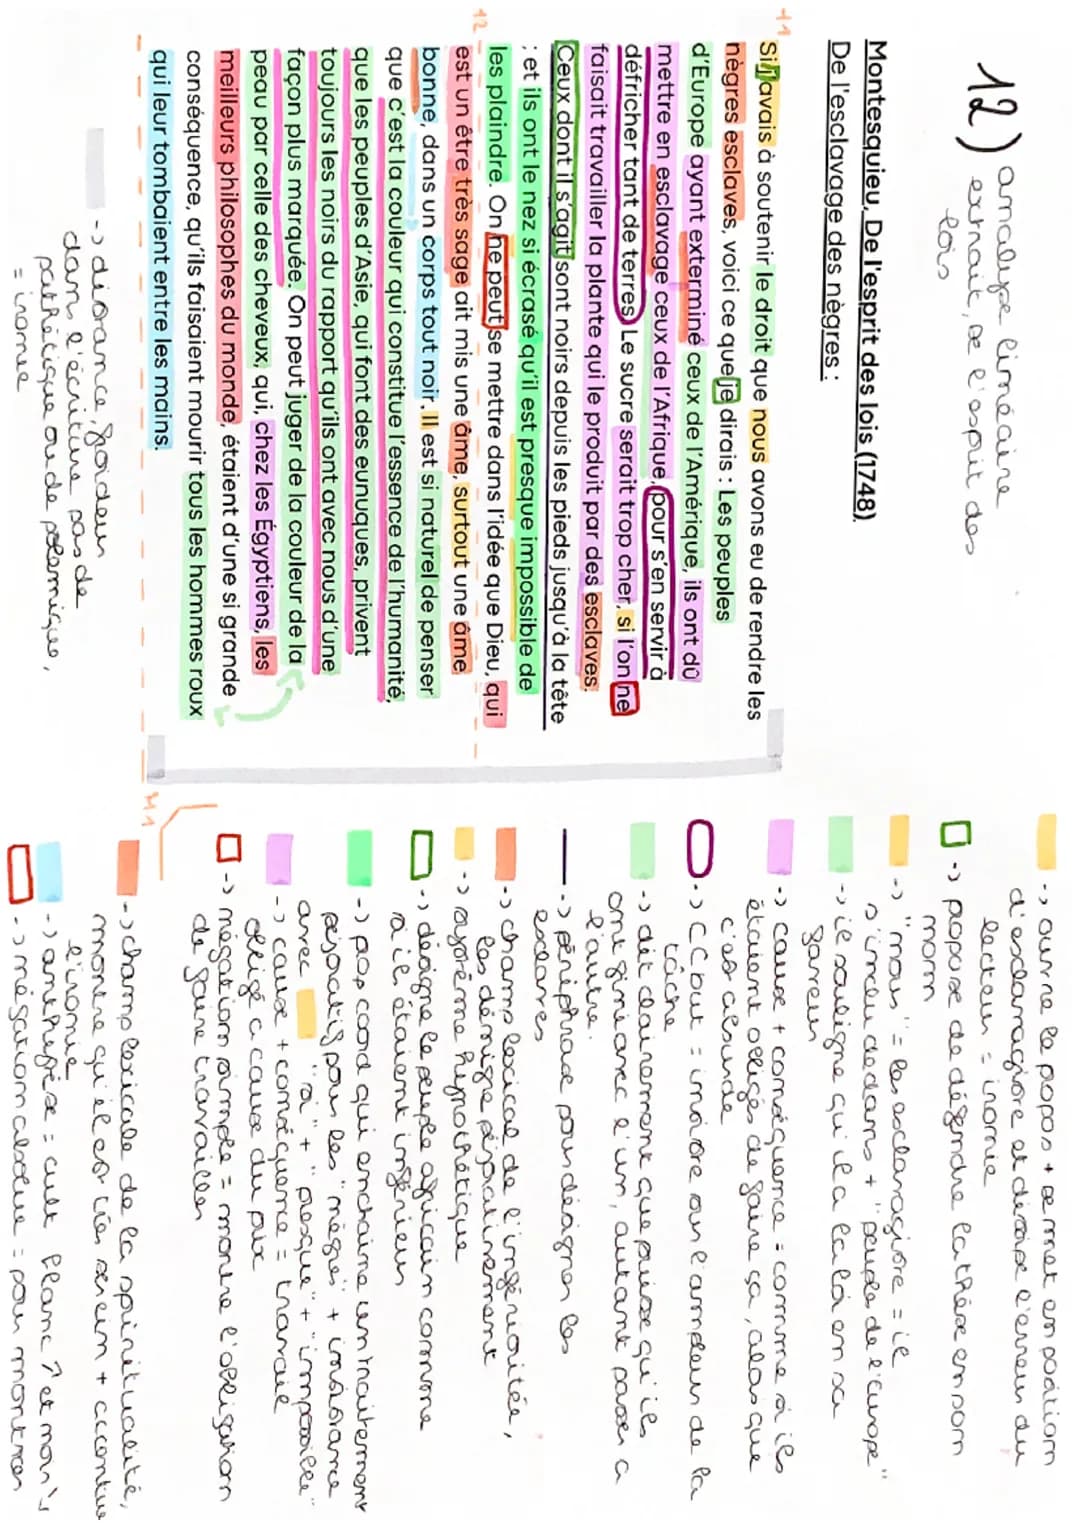 12) analyse linéaire
extrait, de l'esprit des
lois
Montesquieu, De l'esprit des lois (1748).
De l'esclavage des nègres :
l1
Si j'avais à soutenir le droit que nous avons eu de rendre les
nègres esclaves, voici ce que je dirais : Les peuples
d'Europe ayant exterminé ceux de l'Amérique, ils ont dû
mettre en esclavage ceux de l'Afrique, pour s'en servir à
défricher tant de terres. Le sucre serait trop cher, si l'on ne
faisait travailler la plante qui le produit par des esclaves.
Ceux dont il s'agit sont noirs depuis les pieds jusqu'à la tête
; et ils ont le nez si écrasé qu'il est presque impossible de
les plaindre. On ne peut se mettre dans l'idée que Dieu, qui
12
est un être très sage, ait mis une âme, surtout une âme
bonne, dans un corps tout noir. Il est si naturel de penser
que c'est la couleur qui constitue l'essence de l'humanité,
que les peuples d'Asie, qui font des eunuques, privent
toujours les noirs du rapport qu'ils ont avec nous d'une
façon plus marquée. On peut juger de la couleur de la
peau par celle des cheveux, qui, chez les Égyptiens, les
meilleurs philosophes du monde, étaient d'une si grande
conséquence, qu'ils faisaient mourir tous les hommes roux
qui leur tombaient entre les mains.
-> distance, froideur
dans l'écriture pas de
pathétique ou de polémique,
= ironie
-> ouvre le propos + se met en position
d'esclavagiste et dissipe l'erreur du
lecteur = ironie
-> propose de défendre la thèse en son
nom
-> "nous" = les esclavagiste = il
s'inclu dedans + "peuples de l'europe"
-> il souligne qu'il a la loi en sa
faveur
-> cause + conséquence = comme si ils
étaient obligés de faire ça, alors que
c'est absurde
-> CC but = insiste sur l'ampleur de la
tâche
-> dit clairement que puisqu'ils
ont fini avec l'un, autant passer a
l'autre.
-> périphrase pour désigner les
esclaves
-> champ lexical de l'infériorité,
les dénigre péjorativement
-> système hypothétique
-> désigne le peuple africain comme
si ils étaient inférieur
-> pop coord qui enchaine un traitement
péjoratif pour les "nègres" + insistance
avec "si" + "presque" + "impossible"
-> cause + conséquence = travail
obligé a cause du prix
-> négation simple = montre l'obligation
de faire travailler
-> champ lexicale de la spiritualité,
montre qu'il est très serein + accentue
l'ironie
-> antithèse = cult blanc et noir
-> négation absolue = pour montrer